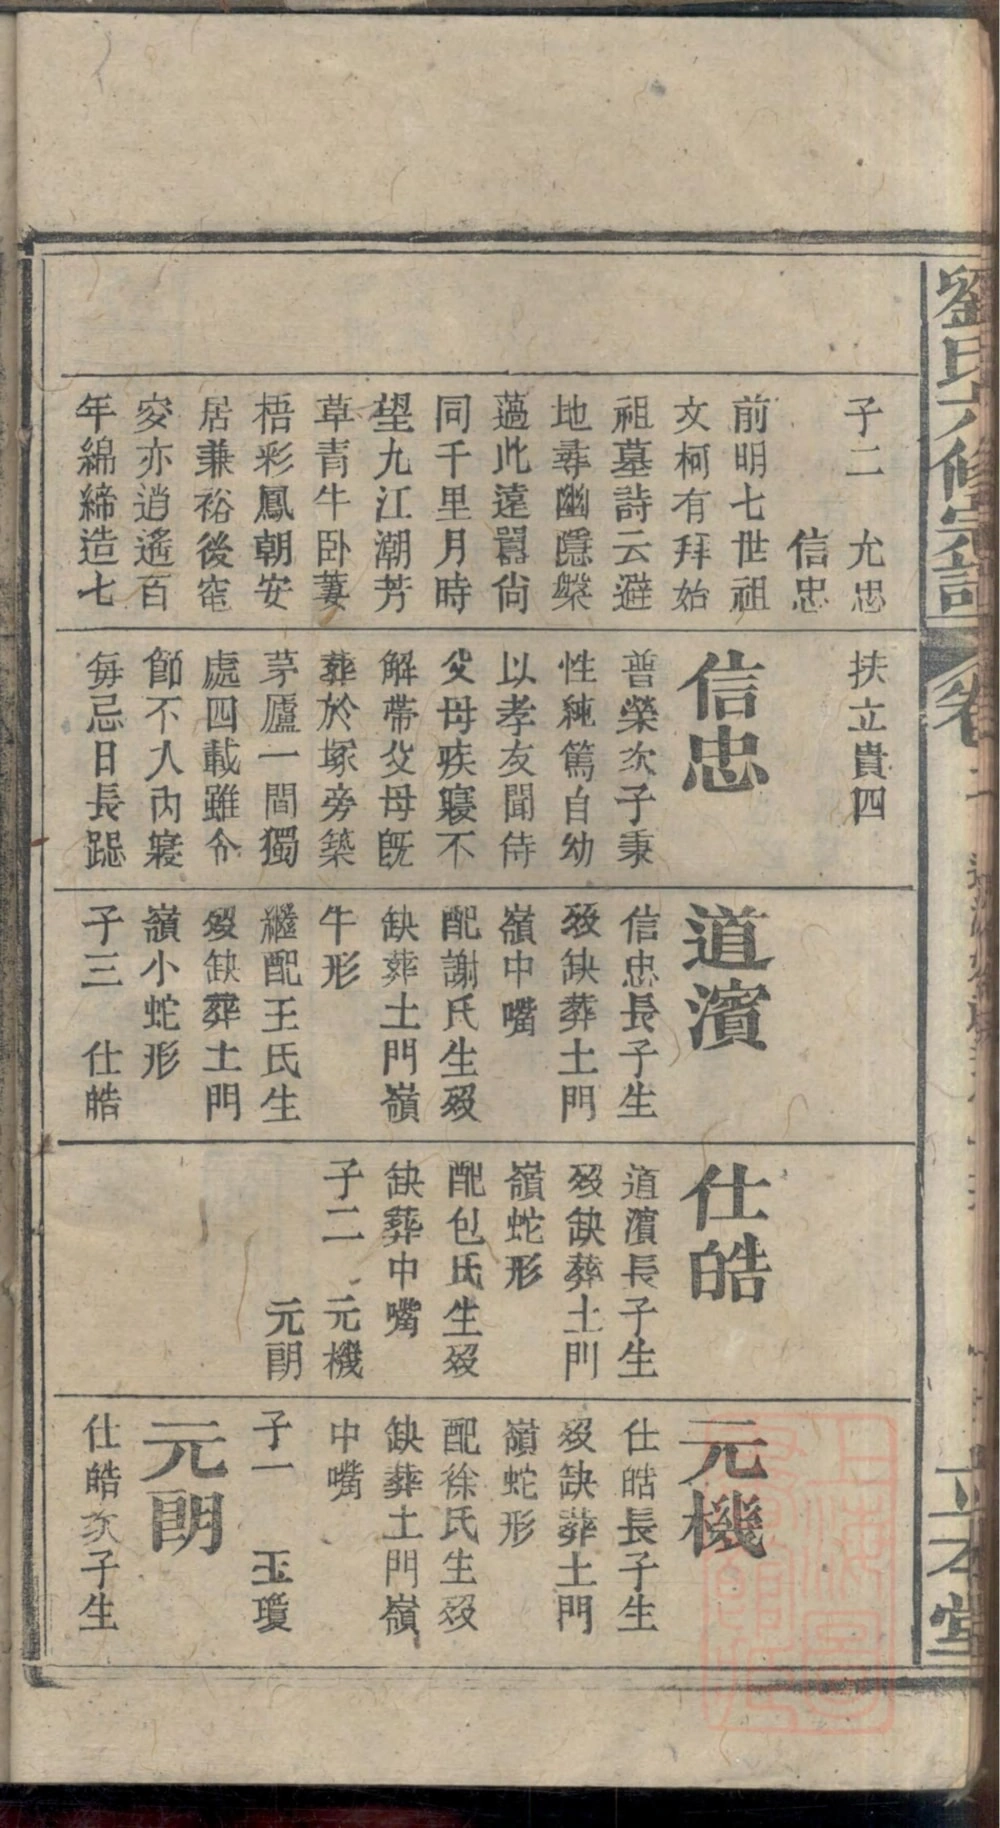 劉氏六修宗譜
立本堂
子二　允忠
信忠
前明七世祖
文柯有拜始
祖墓詩云避
地尋幽隱槃
薖此遠囂尙
同千里月時
望九江潮芳
草青牛卧萋
梧彩鳳朝安
居兼裕後窀
穸亦逍遙百
年綿締造七
扶立貴四
信忠
普榮次子秉
性純篤自幼
以孝友聞侍
父母疾寢不
解帶父母旣
葬於塚旁築
茅廬一間獨
處四載雖令
節不入內寢
每忌日長跽
道濱
信忠長子生
歿缺葬土門
嶺中嘴
配謝氏生歿
缺葬土門嶺
牛形
繼配王氏生
歿缺葬土門
嶺小蛇形
子三　仕皓
仕皓
道濱長子生
歿缺葬土門
嶺蛇形
配包氏生歿
缺葬中嘴
子二　元機
元朗
元機
仕皓長子生
歿缺葬土門
嶺蛇形
配徐氏生歿
缺葬土門嶺
中嘴
子一　玉瓊
元朗
仕皓次子生